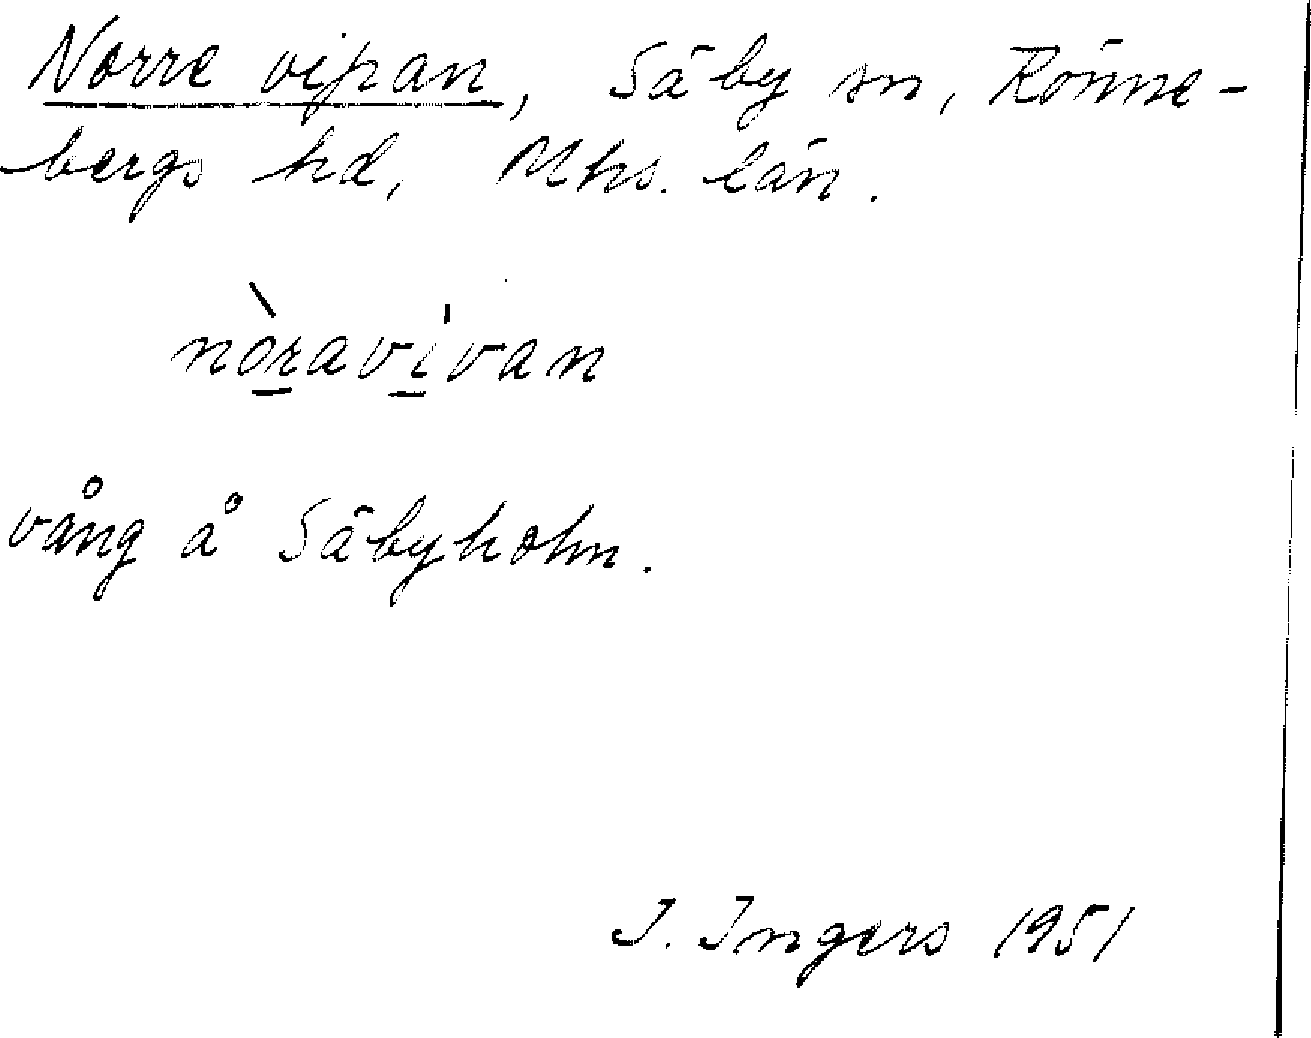 Norre vipan, Säby sn, Rönne-
bergs hd, Mhs. län.
nòravívan
vång å Säbyholm.
I. Ingers 1951